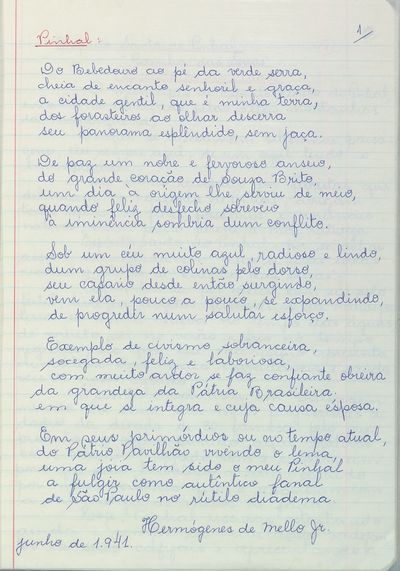 1
Pinhal:
Do Bebedouro ao pé da verde serra,
cheia de encanto senhoril e graça,
a cidade gentil, que é minha terra,
dos forasteiros ao olhar discerra
seu panorama esplêndido, sem jaça.
De paz um nobre e fervoroso anseio,
do grande coração de Souza Brito,
um dia à origem lhe serviu de meio,
quando feliz desfecho sobreveio
à iminência sombria dum conflito.
Sob um céu muito azul, radioso e lindo,
dum grupo de colinas pelo dorso,
seu casario desde então surgindo,
vem ela, pouco a pouco, se expandindo,
de progredir num salutar esforço.
Exemplo de civismo sobranceira,
socegada, feliz e laboriosa,
com muito ardor se faz confiante obreira
da grandeza da Pátria Brasileira,
em que se integra e cuja causa esposa.
Em seus primórdios ou no tempo atual,
do Pátrio Pavilhão vivendo o lema,
uma joia tem sido o meu Pinhal
a fulgir como autêntico fanal
de São Paulo no rútilo diadema.
Hermógenes de Mello Jr.
junho de 1.941.